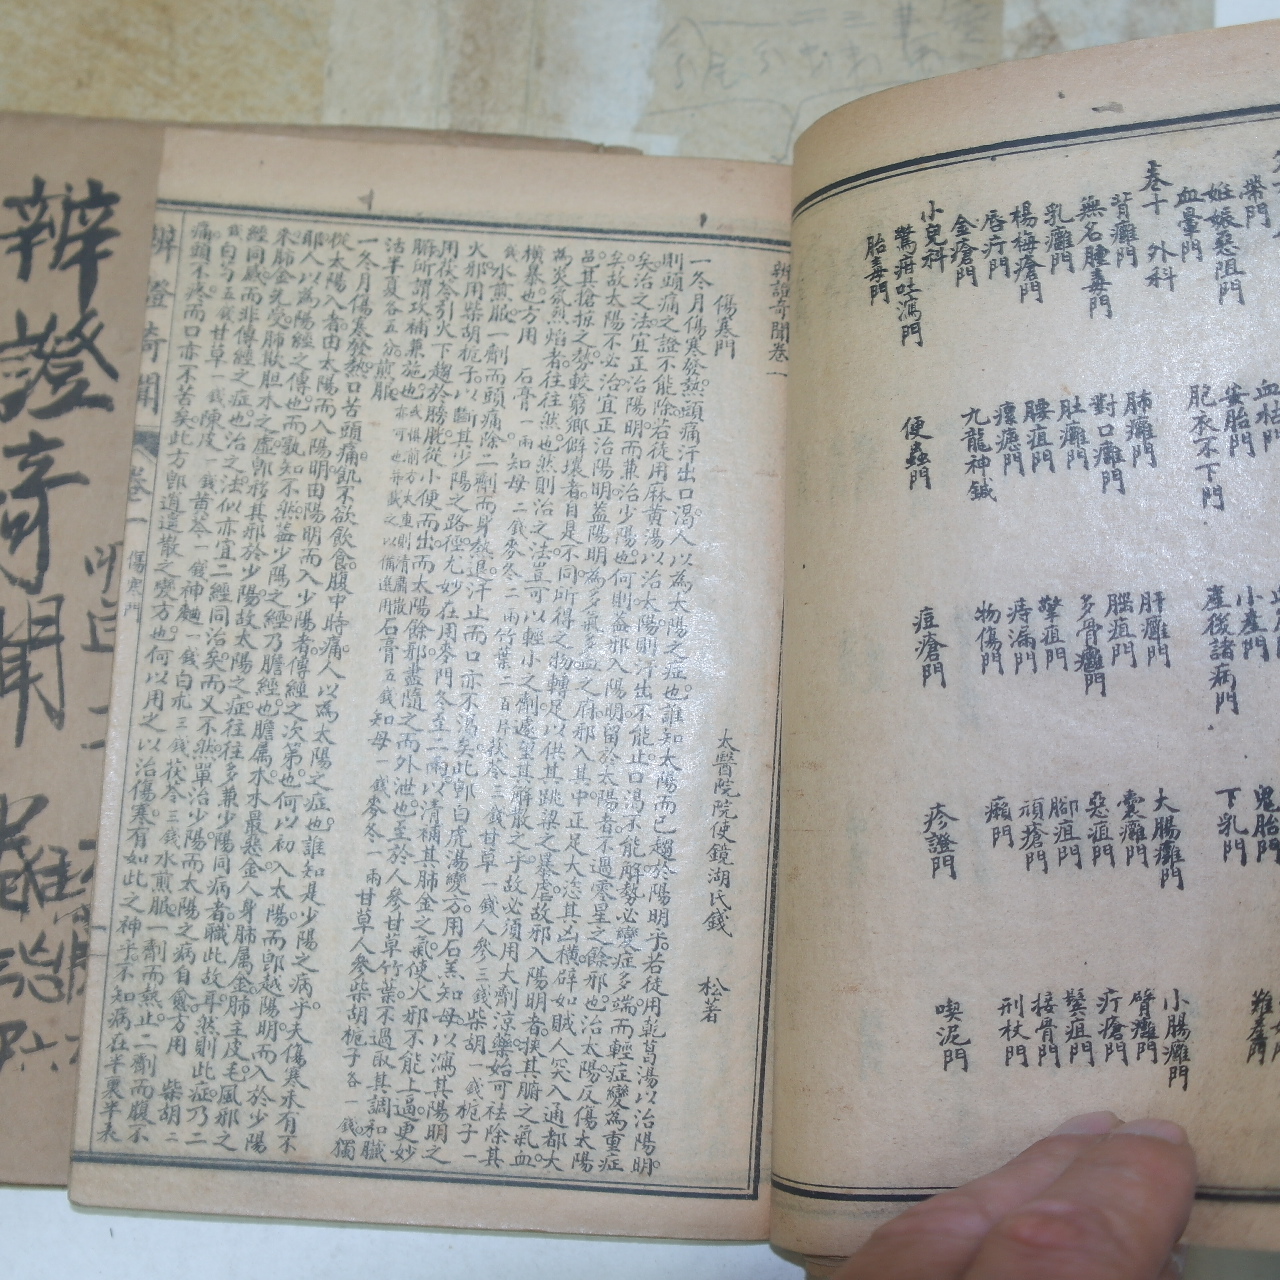 帶門
妊娠惡阻門
血暈門
卷十 外科
背癰門
無名腫毒門
乳癰門
楊梅瘡門
唇疔門
金瘡門
小兒科
驚疳吐瀉門
胎毒門
安胎門
胞衣不下門
肺癰門
對口癰門
肚癰門
腰疽門
瘭瘧門
九龍神鍼
便蟲門
小產門
產後諸病門
肝癰門
腦疽門
多骨癰門
擎疽門
痔漏門
物傷門
痘瘡門
鬼胎門
下乳門
大腸癰門
囊癰門
惡疽門
腳疽門
頑瘡門
癩門
疹證門
小腸癰門
臂癰門
疔瘡門
鬢疽門
接骨門
刑杖門
喫泥門
辨證奇聞卷一
傷寒門
太醫院院使鏡湖氏錢 松著
一冬月傷寒發熱頭痛汗出口渴人以為太陽之症也誰知太陽而已趨於陽明乎若徒用乾葛湯以治陽明
則頭痛之證不能除若徒用麻黃湯以治太陽則汗出不能止口渴不能解勢必變症多端而輕症變為重症
矣治之法宜正治陽明而兼治少陽也何則蓋邪入陽明留於太陽者不過零星之餘邪也治太陽反傷太陽
矣故太陽不必治宜正治陽明蓋陽明為多氣多血之府邪入其中正足大恣其凶橫辟如賊人突入通都大
邑其搶掠之勢較窮鄉僻壤者自是不同所得之物轉足以供其跳梁之暴虐故邪入陽明者挾其腑之氣血
為炎氛烈焰者往往然也然則治之法豈可以輕小之劑遽望其解散之乎故必須用大劑涼藥始可祛除其
橫暴也方用 石膏一兩 知母二錢 麥冬二兩 竹葉二百片 茯苓三錢 甘草一錢 人參三錢 柴胡一錢 梔子一
錢 水煎服一劑而頭痛除二劑而身熱退汗止而口亦不渴矣此即白虎湯變方用石羔知母以瀉其陽明之
火邪用柴胡梔子以斷其少陽之路徑尤妙在用麥門冬至二兩以清補其肺金之氣使火邪不能上逼更妙
用茯苓引火下趨於膀胱從小便而出而太陽餘邪盡隨之而外泄也至於人參甘草竹葉不過取其調和臟
腑所謂攻補兼施也或懼前方太重則清肅散亦可也并載之以備進用石膏五錢知母一錢麥冬一兩甘草人參柴胡梔子各一錢獨
活半夏各五分煎服
一冬月傷寒發熱口苦頭痛飢不欲飲食腹中時痛人以為太陽之症也誰知是少陽之病乎夫傷寒未有不
從太陽入者由太陽而入陽明由陽明而入少陽者傳經之次第也何以初入太陽而即越陽明而入於少陽
耶人以為隔經之傳也而孰知不然蓋少陽之經乃膽經也膽屬木木最惡金人身肺屬金肺主皮毛風邪之
來肺金先受肺欺胆木之虛即移其邪於少陽故太陽之症往往多兼少陽同病者職此故耳然則此症乃二
經同感而非傳經之症也治之法似亦宜二經同治矣而又不然單治少陽而太陽之病自愈方用 柴胡二
錢 白芍五錢 甘草一錢 陳皮一錢 黃芩一錢 神麯一錢 白朮三錢 茯苓三錢 水煎服一劑而熱止二劑而腹不
痛頭不疼而口亦不苦矣此方即逍遙散之變方也何以用之以治傷寒有如此之神乎不知病在半裏半表
辨證奇聞 卷一 傷寒門
一
辨證奇聞